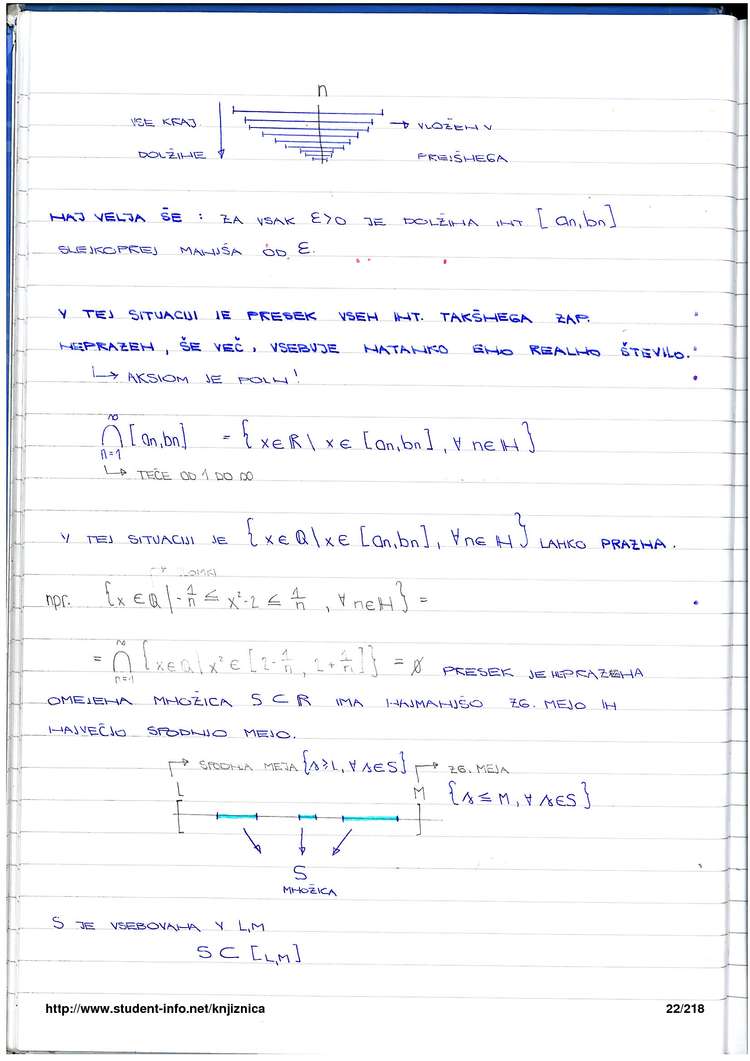 n
VSE KRAJ → VLOŽEN V
DOLŽINE PREJŠNEGA
NAJ VELJA ŠE : ZA VSAK ε>0 JE DOLŽINA INT [an,bn]
SLEJKOPREJ MANJŠA OD ε.
V TEJ SITUACIJI JE PRESEK VSEH INT. TAKŠNEGA ZAP.
NEPRAZEN, ŠE VEČ, VSEBUJE NATANKO ENO REALNO ŠTEVILO.
↳ AKSIOM JE POLN!
∞
⋂ [an,bn] = {x∈ℝ | x∈[an,bn], ∀n∈ℕ}
n=1
↳ TEČE OD 1 DO ∞
V TEJ SITUACIJI JE {x∈ℚ | x∈[an,bn], ∀n∈ℕ} LAHKO PRAZNA.
npr. {x∈ℚ | -1/n ≤ x²-2 ≤ 1/n, ∀n∈ℕ} =
∞
= ⋂ {x∈ℚ | x²∈[2-1/n, 2+1/n]} = ∅ PRESEK JE NEPRAZENA
n=1
OMEJENA MNOŽICA S ⊂ ℝ IMA NAJMANJŠO ZG. MEJO IN
NAJVEČJO SPODNJO MEJO.
↱ SPODNJA MEJA {s≥L, ∀s∈S} ↱ ZG. MEJA
L M {s≤M, ∀s∈S}
S
MNOŽICA
S JE VSEBOVANA V L,M
S ⊂ [L,M]
http://www.student-info.net/knjiznica 22/218